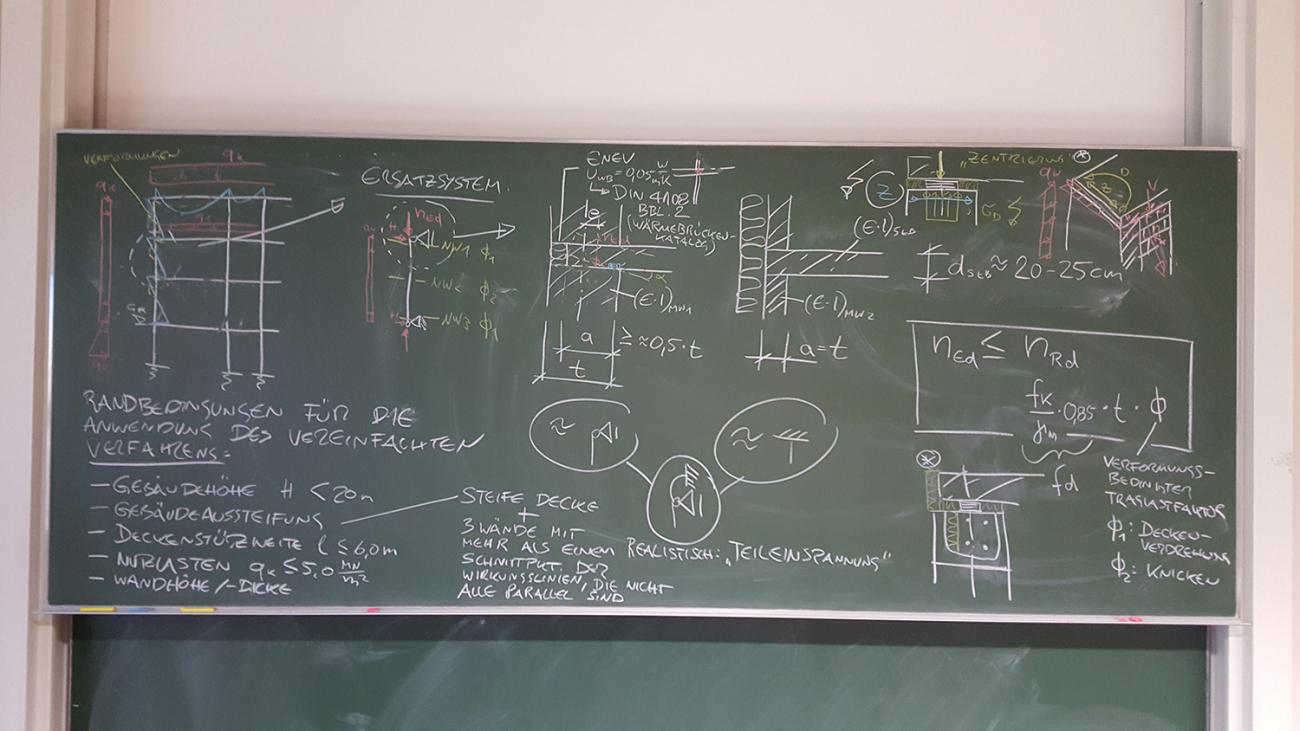 VERFORMUNGEN
qk
qk
qk
ERSATZSYSTEM.
nEd
NW1 ϕ1
NW2 ϕ2
NW3 ϕ1
ENEV
UWB = 0,05 W/m²K
DIN 4108
BBL. 2
(WÄRMEBRÜCKEN-
KATALOG)
(E·I)MW1
a
≥ ≈0,5·t
t
(E·I)STB
(E·I)MW2
a=t
Z
"ZENTRIERUNG"
σD
qk
D
Z
V
dSTB ≈ 20-25cm
nEd ≤ nRd
fk/γm · 0,85 · t · ϕ
fd
VERFORMUNGS-
BEDINGTER
TRAGLASTFAKTOR
ϕ1: DECKEN-
VERDREHUNG
ϕ2: KNICKEN
RANDBEDINGUNGEN FÜR DIE
ANWENDUNG DES VEREINFACHTEN
VERFAHRENS:
- GEBÄUDEHÖHE H < 20m
- GEBÄUDEAUSSTEIFUNG
- DECKENSTÜTZWEITE l ≤ 6,0m
- NUTZLASTEN qk ≤ 5,0 MN/m²
- WANDHÖHE/-DICKE
STEIFE DECKE
+
3 WÄNDE MIT
MEHR ALS EINEM
SCHNITTPKT. DER
WIRKUNGSLINIEN, DIE NICHT
ALLE PARALLEL SIND
≈
≈
REALISTISCH: "TEILEINSPANNUNG"